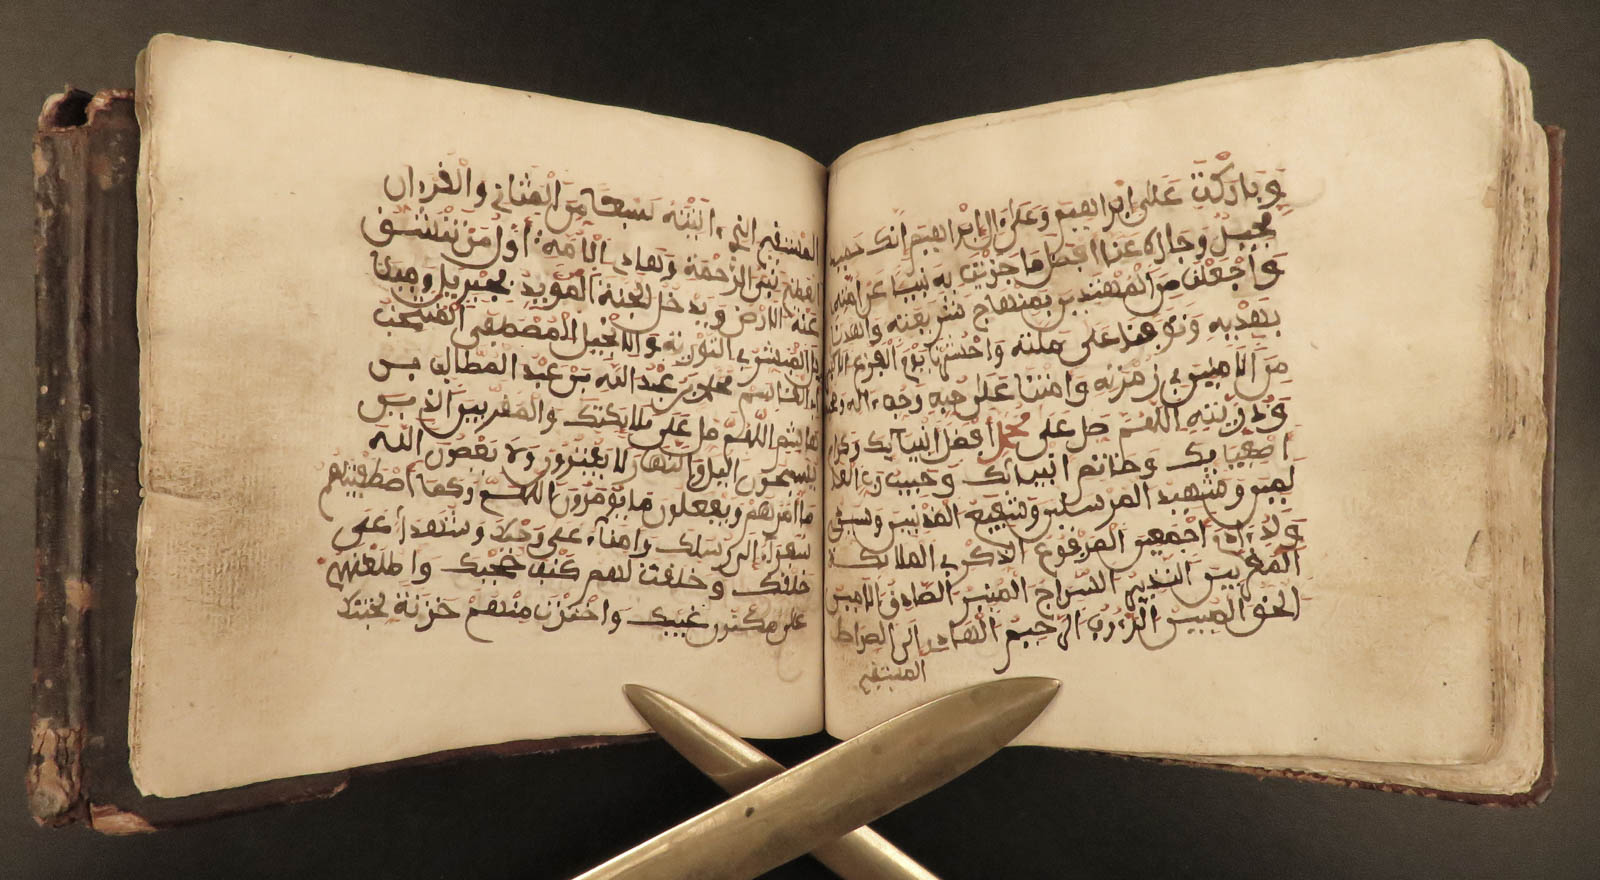 وباركت على ابراهيم وعلى ال ابراهيم انك حميد
مجيد وجازه عنا افضل ما جزيت به نبيا عن امته
واجعلنا من المهتدين بمنهاج شريعته واهدنا
بهديه وتوفنا على ملته واحشرنا يوم الفزع الاكبر
من الامنين في زمرته وامتنا على حبه وحب ءاله
وذريته اللهم صل على محمد افضل انبيائك واكرم
اصفيائك وخاتم انبيائك وحبيب رب العا
لمين وشهيد المرسلين وشفيع المذنبين وسيد
ولد ءادم اجمعين المرفوع الذكر في الملائكة
المقربين النذير السراج المنير الصادق الامين
الحق المبين الرءوف الرحيم الهادي الى الصراط
المستقيم
المستقيم الذي ءاتيته سبعا من المثاني والقرءان
العظيم نبي الرحمة وهادي الامة اول من تنشق
عنه الارض ويدخل الجنة المؤيد بجبريل وميكا
يل المبشر به في التورية والانجيل المصطفى المنتخب
ابي القاسم محمد بن عبد الله بن عبد المطلب بن
هاشم اللهم صل على ملائكتك والمقربين الذين
يسبحون اليل والنهار لا يفترون ولا يعصون الله
ما امرهم ويفعلون ما يؤمرون اللهم وكما اصطفيتهم
سفراء الى رسلك وامناء على وحيك وشهداء على
خلقك وخرقت لهم كنف حجبك واطلعتهم
على مكنون غيبك واخترت منهم خزنة لجنتك